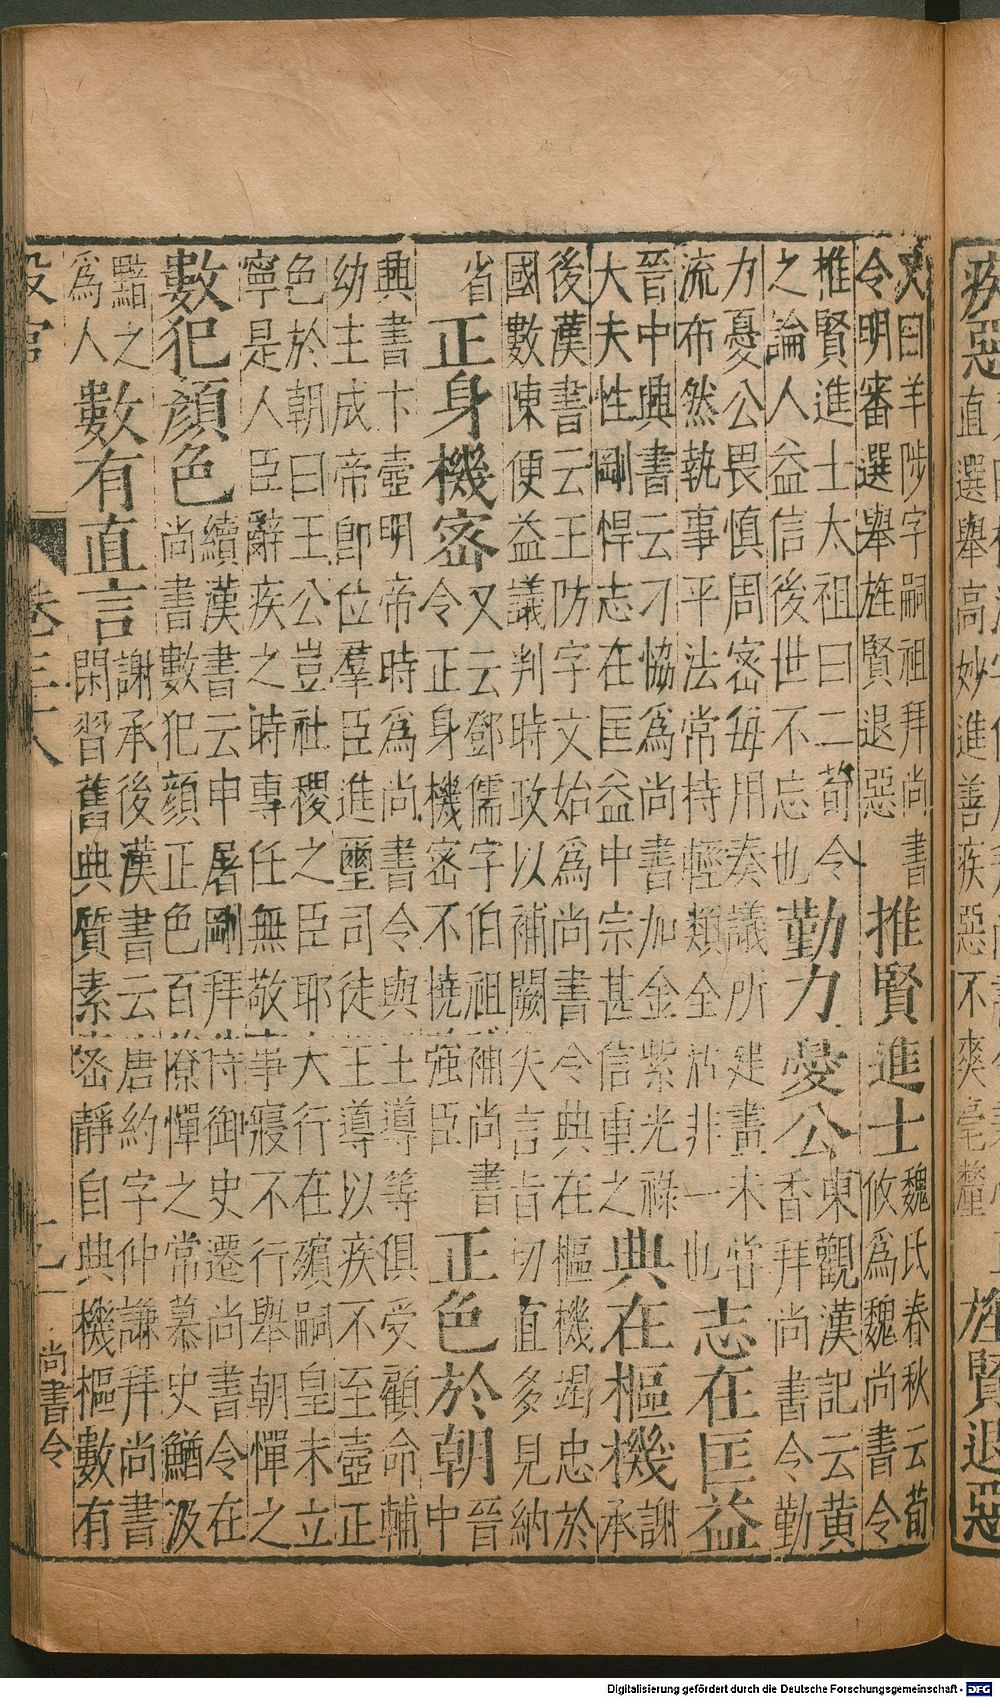 疾惡
直選舉高妙進善疾惡不爽毫釐
旌賢退惡
又曰羊陟字嗣祖拜尚書
令明審選舉旌賢退惡
推賢進士
魏氏春秋云荀
攸為魏尚書令
推賢進士太祖曰二荀令
之論人益信後世不忘也
勤力憂公
東觀漢記云黄
香拜尚書令勤
力憂公畏慎周宻每用奏議所建畫未甞
流布然執事平法常持輕類全活非一也
志在匡益
晉中興書云刁協為尚書加金紫光祿
大夫性剛悍志在匡益中宗甚信重之
典在樞機
謝
承
後漢書云王防字文始為尚書令典在樞機竭忠於
國數陳便益議判時政以補闕失言旨切直多見納
省
正身機宻
又云鄧儒字伯祖補尚書
令正身機宻不撓强臣
正色於朝
晉
中
興書卞壼明帝時為尚書令與王導等俱受顧命輔
幼主成帝即位羣臣進璽司徒王導以疾不至壼正
色於朝曰王公豈社稷之臣耶大行在殯嗣皇未立
寧是人臣辭疾之時專任無敬事寢不行舉朝憚之
數犯顏色
續漢書云申屠剛拜侍御史遷尚書令在
尚書數犯顏正色百僚憚之常慕史鰌汲
黯之
為人
數有直言
謝承後漢書云唐約字仲謙拜尚書
閑習舊典質素宻靜自典機樞數有
設官
卷三十八
尚書令
Digitalisierung gefördert durch die Deutsche Forschungsgemeinschaft - DFG